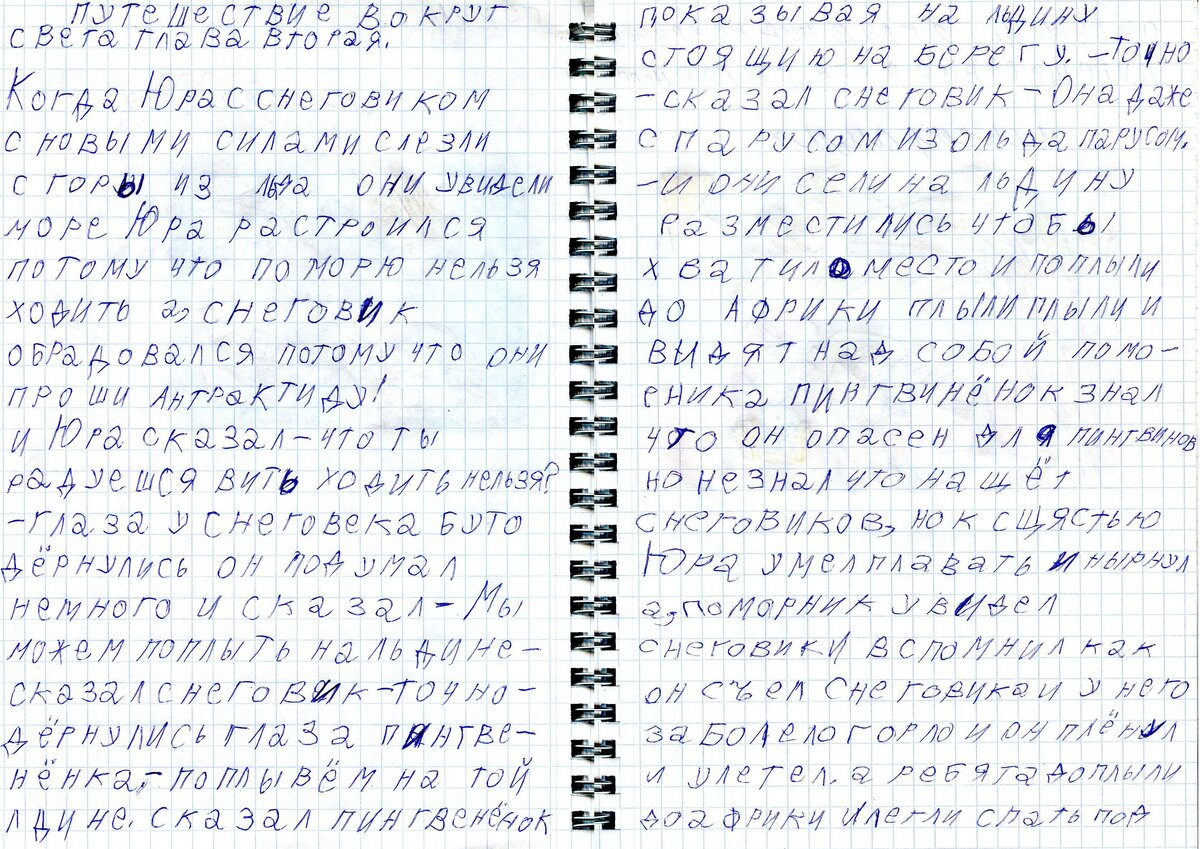 ПУТЕШЕСТВИЕ ВОКРУГ
СВЕТА ГЛАВА ВТОРАЯ.
КОГДА ЮРА С СНЕГОВИКОМ
С НОВЫМИ СИЛАМИ СЛЕЗЛИ
С ГОРЫ ИЗ ЛЬДА ОНИ УВИДЕЛИ
МОРЕ ЮРА РАСТРОИЛСЯ
ПОТОМУ ЧТО ПО МОРЮ НЕЛЬЗЯ
ХОДИТЬ а, СНЕГОВИК
ОБРАДОВАЛСЯ ПОТОМУ ЧТО ОНИ
ПРОШИ АНТРАКТИДУ!
И ЮРА СКАЗАЛ-ЧТО ТЫ
РАДУЕШСЯ ВИТЬ ХОДИТЬ НЕЛЬЗЯ?
-ГЛАЗА У СНЕГОВЕКА БУТО
ДЁРНУЛИСЬ ОН ПОДУМАЛ
НЕМНОГО И СКАЗАЛ-МЫ
МОЖЕМ ПОПЛЫТЬ НА ЛЬДИНЕ-
СКАЗАЛ СНЕГОВИК-ТОЧНО-
ДЁРНУЛИСЬ ГЛАЗА ПИНГВЕ-
НЁНКА,-ПОПЛЫВЁМ НА ТОЙ
ЛДИНЕ. СКАЗАЛ ПИНГВЕНЁНОК
ПОКАЗЫВАЯ НА ЛЬДИНУ
СТОЯЩИЮ НА БЕРЕГУ. -ТОЧНО
-СКАЗАЛ СНЕГОВИК-ОНА ДАЖЕ
С ПАРУСОМ ИЗ ОЛЬДА ПАРУСОМ.
-И ОНИ СЕЛИ НА ЛЬДИНУ
РАЗМЕСТИЛИСЬ ЧТОБЫ
ХВАТИЛО МЕСТО И ПОПЛЫЛИ
ДО АФРИКИ ПЛЫЛИ ПЛЫЛИ И
ВИДЯТ НАД СОБОЙ ПОМО-
РНИКА ПИНГВИНЁНОК ЗНАЛ
ЧТО ОН ОПАСЕН ДЛЯ ПИНГВИНОВ
НО НЕ ЗНАЛ ЧТО НАЩЁТ
СНЕГОВИКОВ, НО К СЩЯСТЬЮ
ЮРА УМЕЛ ПЛАВАТЬ И НЫРНУЛ
а, ПОМОРНИК УВИДЕЛ
СНЕГОВИКИ ВСПОМНИЛ КАК
ОН СЪЕЛ СНЕГОВИКА И У НЕГО
ЗАБОЛЕЛО ГОРЛО И ОН ПЛЁНУЛ
И УЛЕТЕЛ. а РЕБЯТА ДОПЛЫЛИ
ДО АФРИКИ И ЛЕГЛИ СПАТЬ ПОД